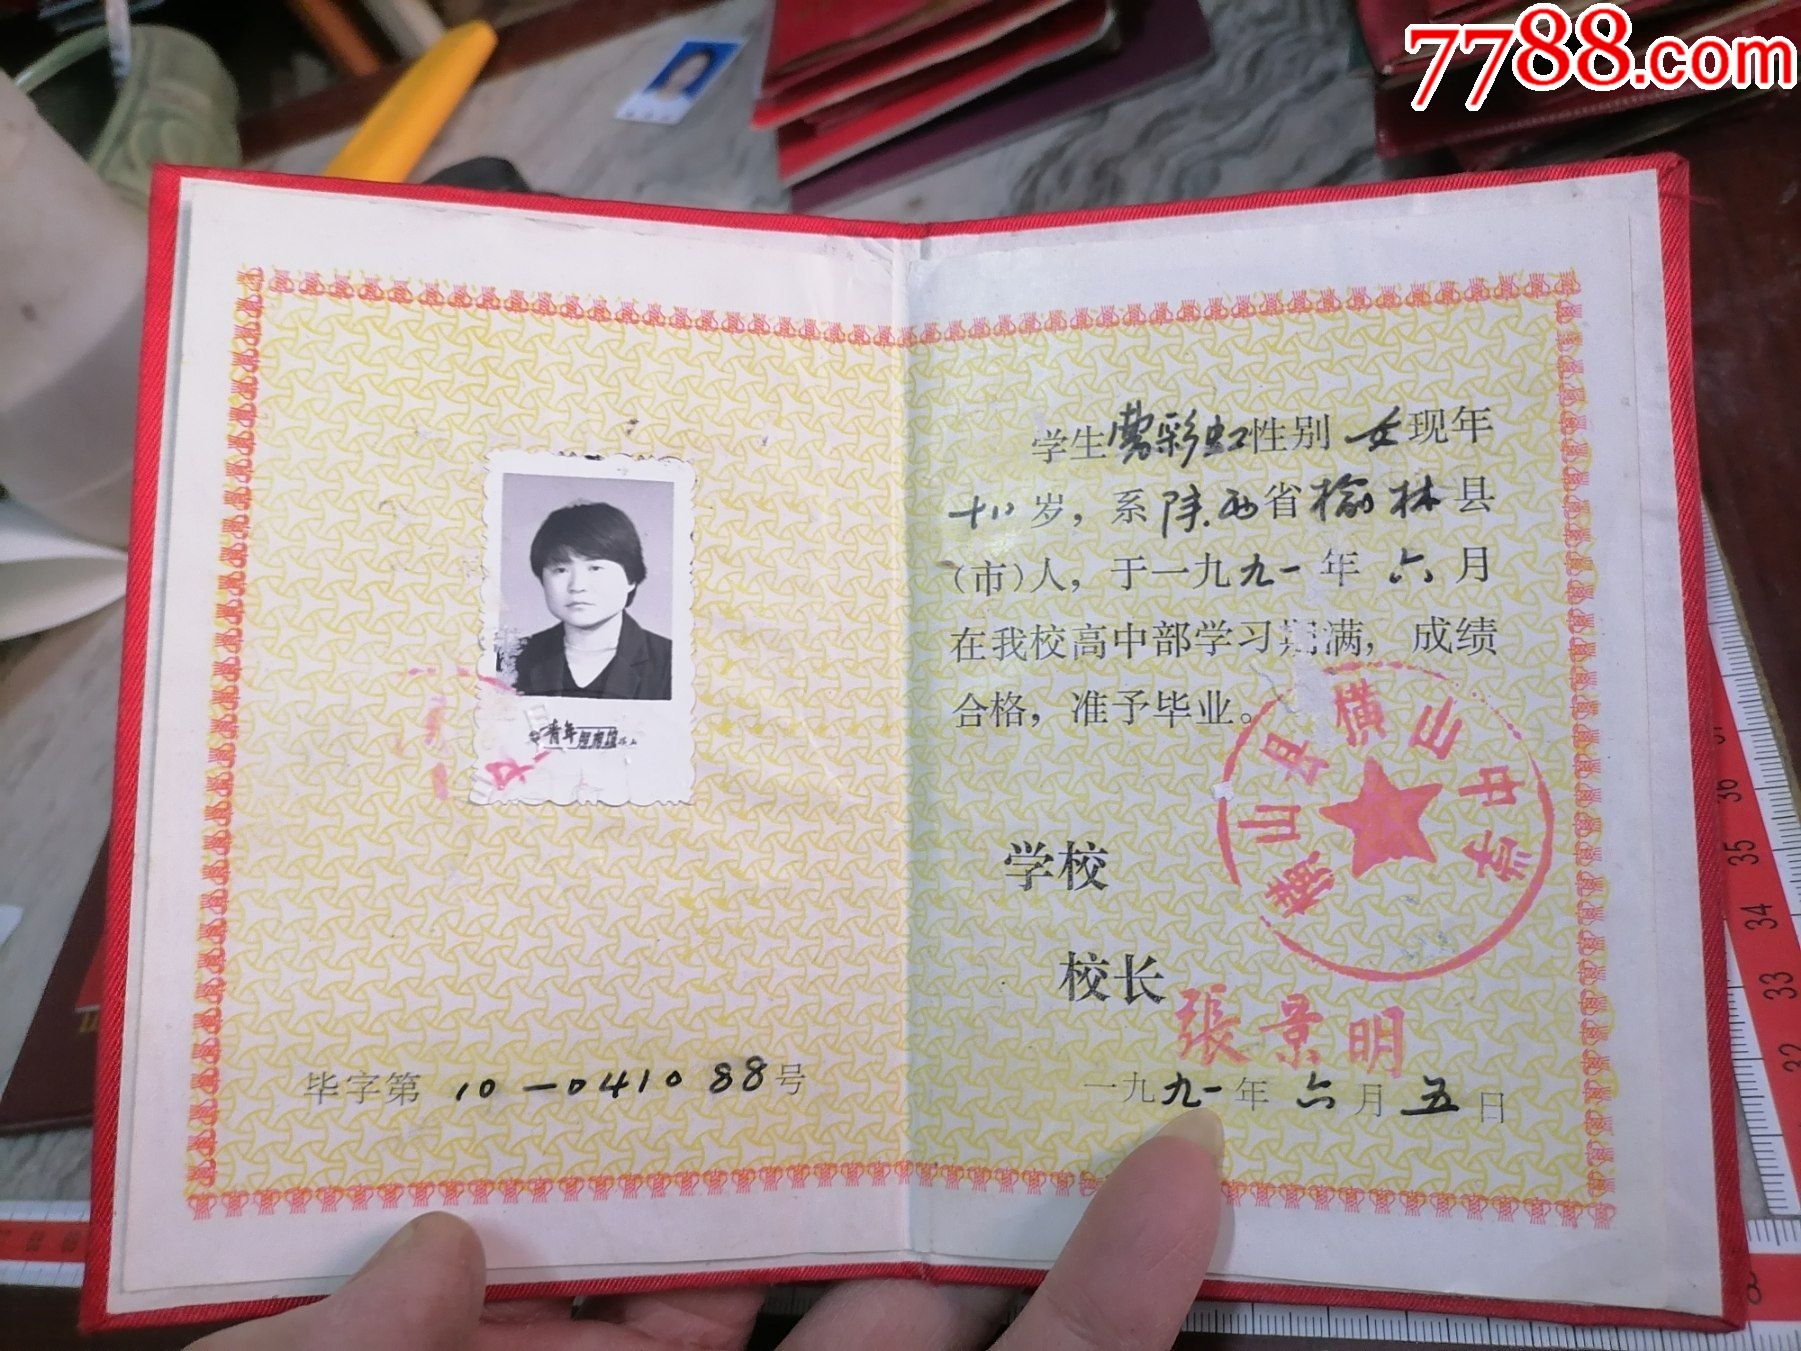 7788.com
学生曹彩虹性别 女 现年
十八岁，系陕西省榆林县
(市)人，于一九九一年 六月
在我校高中部学习期满，成绩
合格，准予毕业。
横山县横山中
学校
校长
張景明
一九九一年 六月 五日
青年照相馆
毕字第 10-041088号
36
35
34
33
32